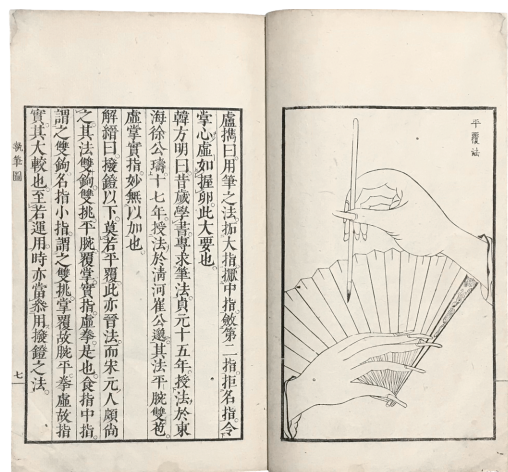 平覆法
盧擕曰用筆之法拓大指擫中指斂第二指拒名指令
掌心虛如握卵此大要也
韓方明曰昔歲學書專求筆法貞元十五年授法於東
海徐公璹十七年授法於淸河崔公邈其法平腕雙苞
虛掌實指妙無以加也
解縉曰撥鐙以下莫若平覆此亦晉法而宋元人頗尚
之其法雙鉤雙挑平腕覆掌實指虛拳是也食指中指
謂之雙鉤名指小指謂之雙挑掌覆故腕平拳虛故指
實其大較也至若運用時亦當叅用撥鐙之法
執筆圖
七